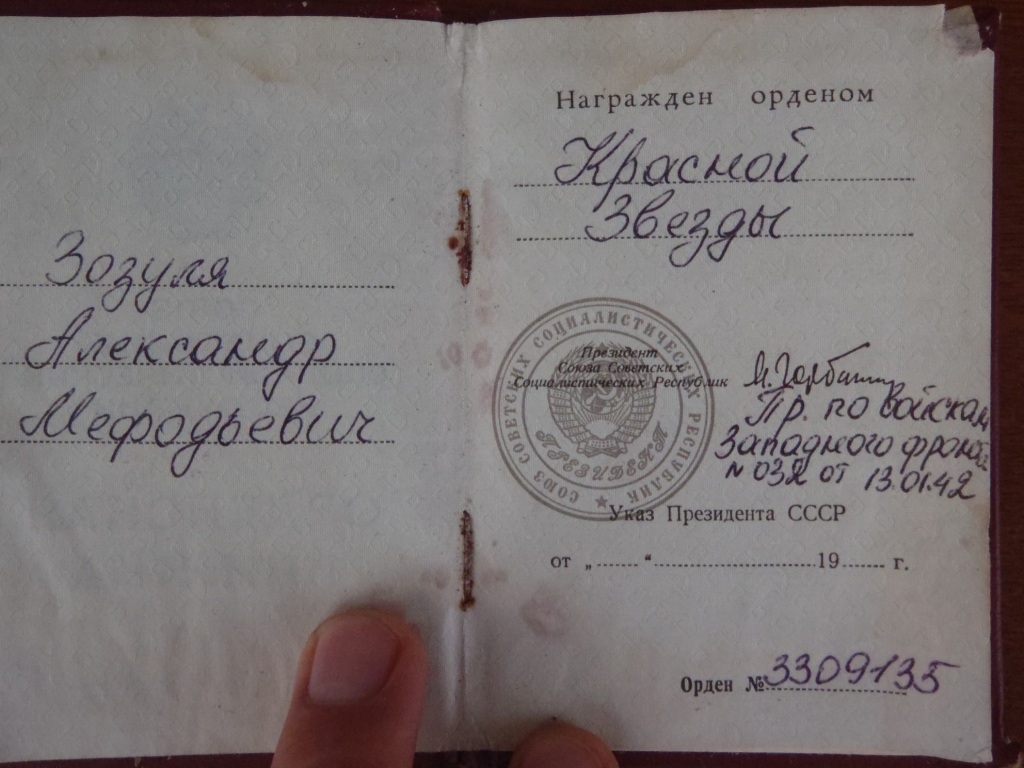 Зозуля
Александр
Мефодьевич
Награжден орденом
Красной
Звезды
СОЮЗ СОВЕТСКИХ СОЦИАЛИСТИЧЕСКИХ РЕСПУБЛИК
ПРЕЗИДЕНТ
Президент
Союза Советских
Социалистических Республик
Пр. по войскам
Западного фронта
№ 032 от 13.01.42
Указ Президента СССР
от „ “ 19 г.
Орден № 3309135